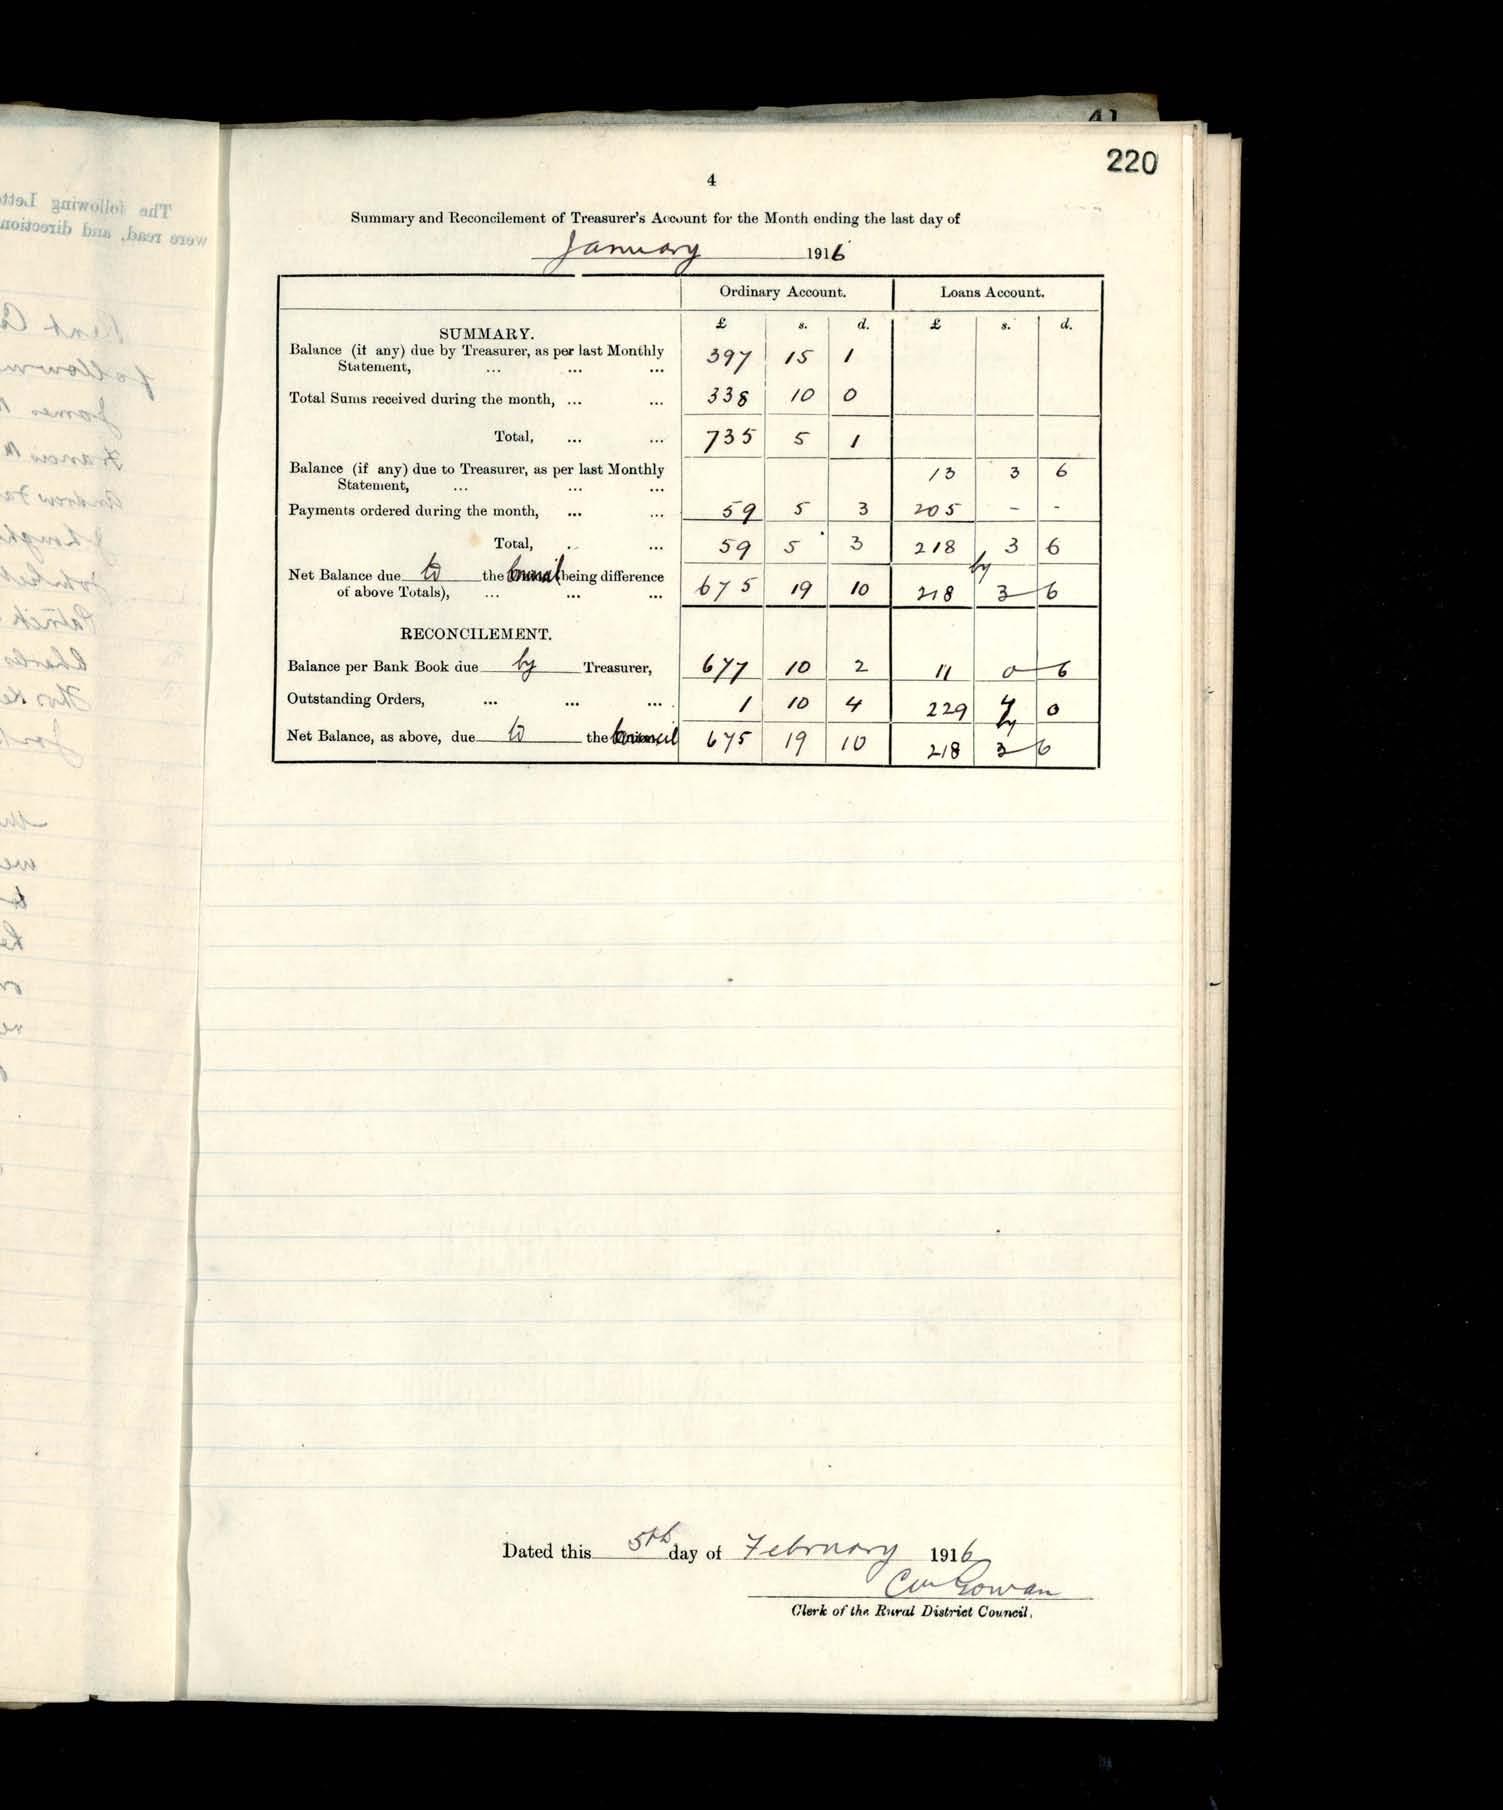 41
220
4
Summary and Reconcilement of Treasurer's Account for the Month ending the last day of
January 1916
Ordinary Account. Loans Account.
£ s. d. £ s. d.
SUMMARY.
Balance (if any) due by Treasurer, as per last Monthly
Statement, ... ... ... 397 15 1
Total Sums received during the month, ... ... 338 10 0
Total, ... ... 735 5 1
Balance (if any) due to Treasurer, as per last Monthly
Statement, ... ... ... 13 3 6
Payments ordered during the month, ... ... 59 5 3 205 - -
Total, .. ... 59 5 3 218 3 6
Net Balance due to the Council being difference by
of above Totals), ... ... ... 675 19 10 218 3 6
RECONCILEMENT.
Balance per Bank Book due by Treasurer, 677 10 2 11 0 6
Outstanding Orders, ... ... ... 1 10 4 229 4 0
Net Balance, as above, due to the Council 675 19 10 by 218 3 6
Dated this 5th day of February 1916
Gowan
Clerk of the Rural District Council.
The following Lette
were read, and direction